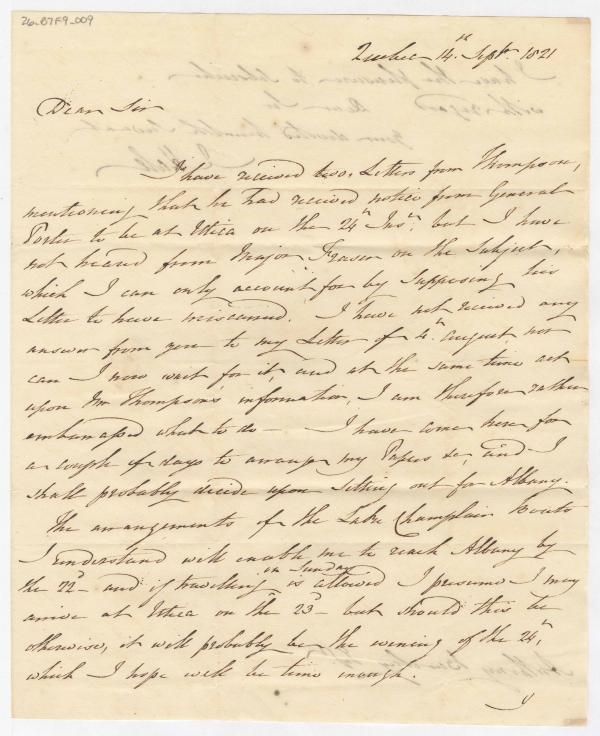 26-B7F9-009
Quebec 14th Septr. 1821
Dear Sir
I have received two Letters from Thompson,
mentioning that he had received notice from General
Porter to be at Utica on the 24th Inst. but I have
not heard from Major Fraser on the Subject,
which I can only account for by Supposing his
Letter to have miscarried. I have not received any
answer from you to my Letter of 4th August, nor
can I now wait for it, and at the same time act
upon Mr Thompson's information, I am therefore rather
embarrassed what to do — I have come here for
a couple of days to arrange my Papers &c, and I
shall probably decide upon setting out for Albany.
The arrangements of the Lake Champlain Boats
I understand will enable me to reach Albany by
the 22d — and if travelling on Sunday is allowed I presume I may
arrive at Utica on the 23d — but should this be
otherwise, it will probably be the evening of the 24th,
which I hope will be time enough.
I have the pleasure to subscribe
with regard
Dear Sir
your devoted humble Servant
J. Hale
Anthony Barclay Esqr